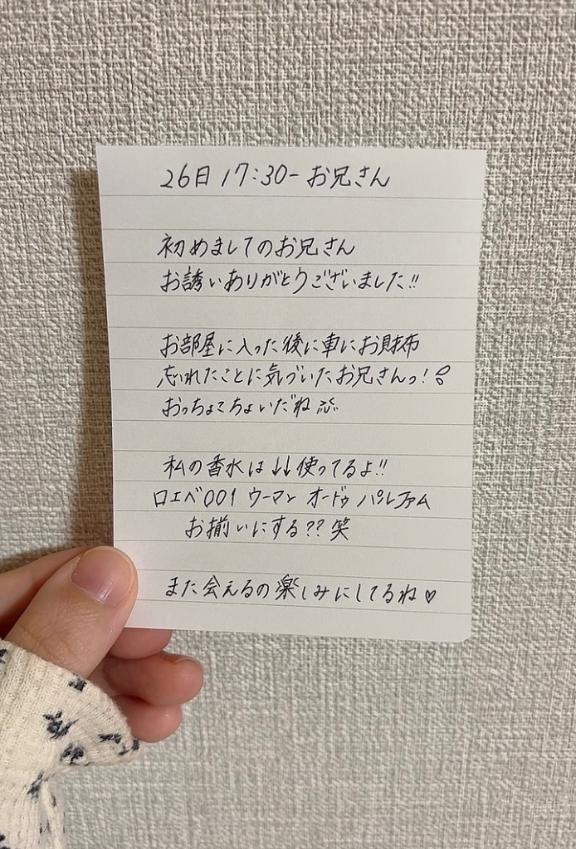 26日 17:30- お兄さん
初めましてのお兄さん
お誘いありがとうございました!!
お部屋に入った後に車にお財布
忘れたことに気づいたお兄さんっ!
おっちょこちょいだね
私の香水は↓↓使ってるよ!!
ロエベ001 ウーマン オードゥ パルファム
お揃いにする?? 笑
また会えるの楽しみにしてるね♡